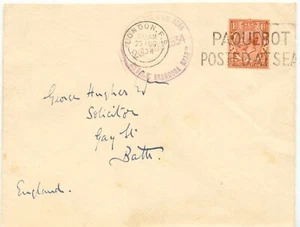 LONDON. F.S.
PAQUEBOT
POSTED AT SEA
George Hughes
Solicitor
Gay St
Bath.
England.